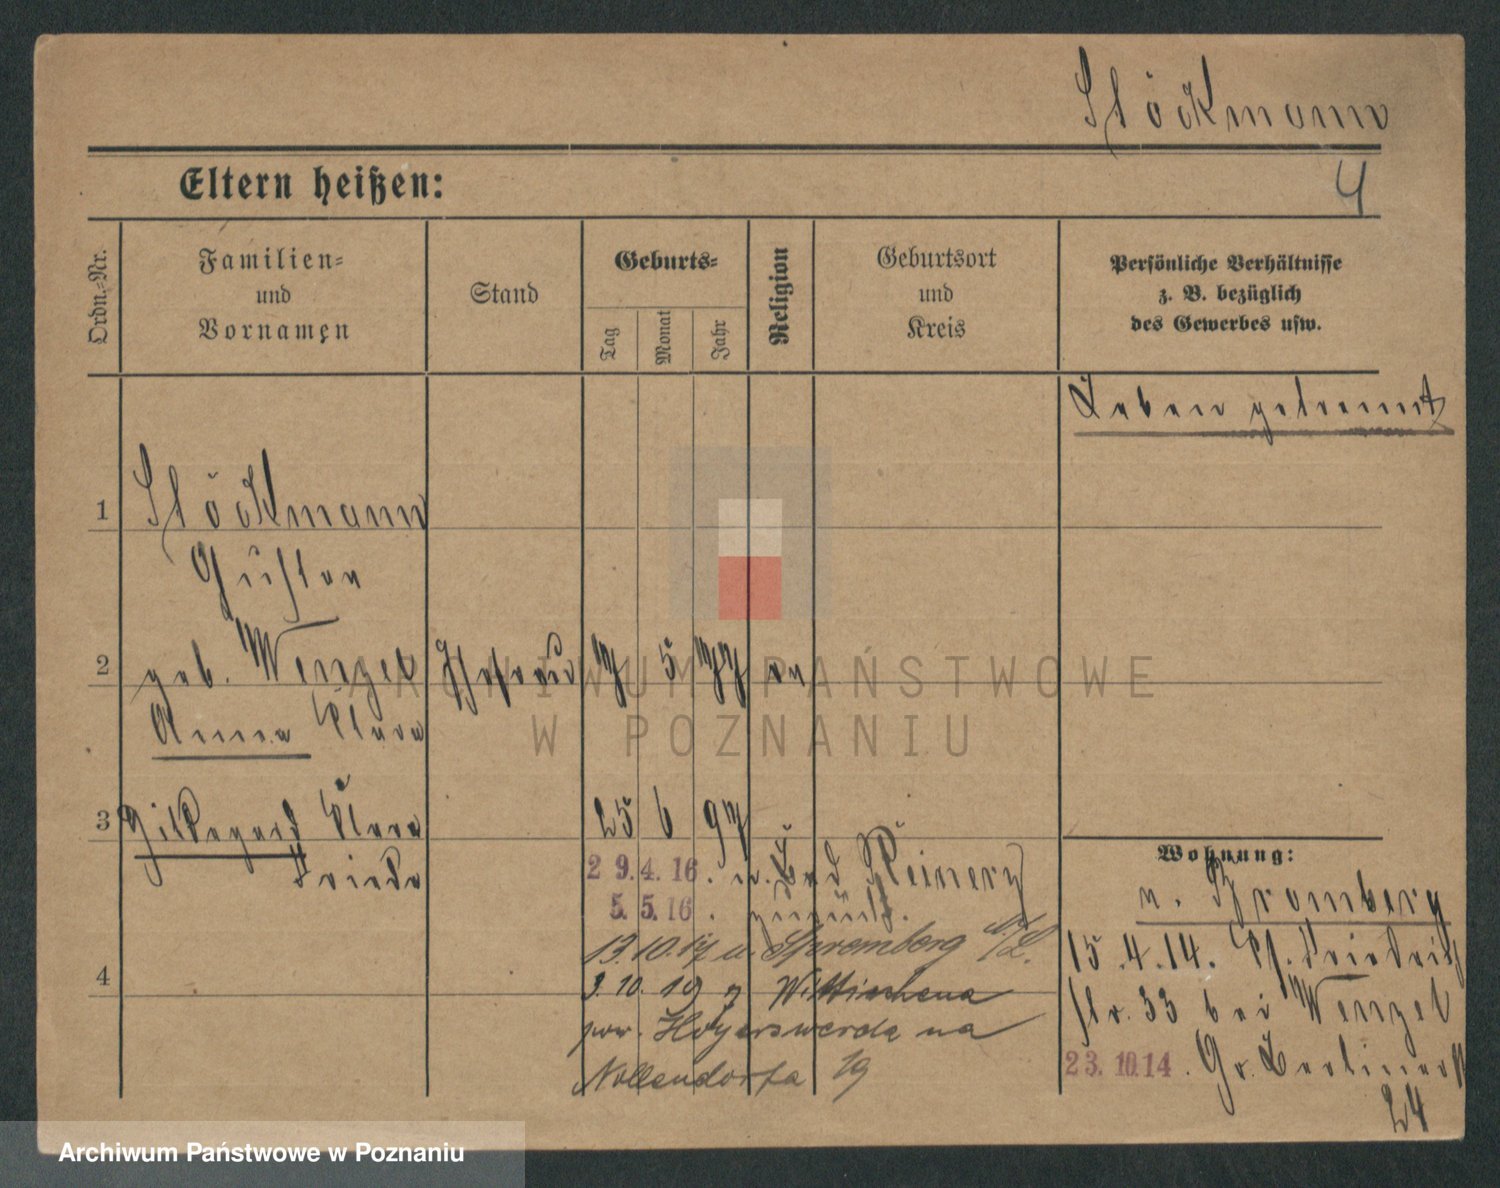 Stöckmann
Eltern heißen:
4
Ordn.-Nr.
Familien-
und
Vornamen
Stand
Geburts-
Tag
Monat
Jahr
Religion
Geburtsort
und
Kreis
Persönliche Verhältnisse
z. B. bezüglich
des Gewerbes usw.
Leben getrennt
1
Stöckmann
Gustav
2
geb. Wenzel Ehefrau 17 5 77 ev
Anna Clara
3
Hildegard Clara 25 6 97
Frieda
29.4.16. n. Bad Reinerz
5.5.16. zurück.
13.10.17 n. Spremberg N/L.
4
9.10.19 z Wittichena
pow. Hoyerswerda na
Nollendorfa 19
Wohnung:
v. Bromberg
15.4.14. Kl. Friedrich
str. 33 bei Wenzel
23.10.14. Gr. Berliner
24
ARCHIWUM PAŃSTWOWE
W POZNANIU
Archiwum Państwowe w Poznaniu